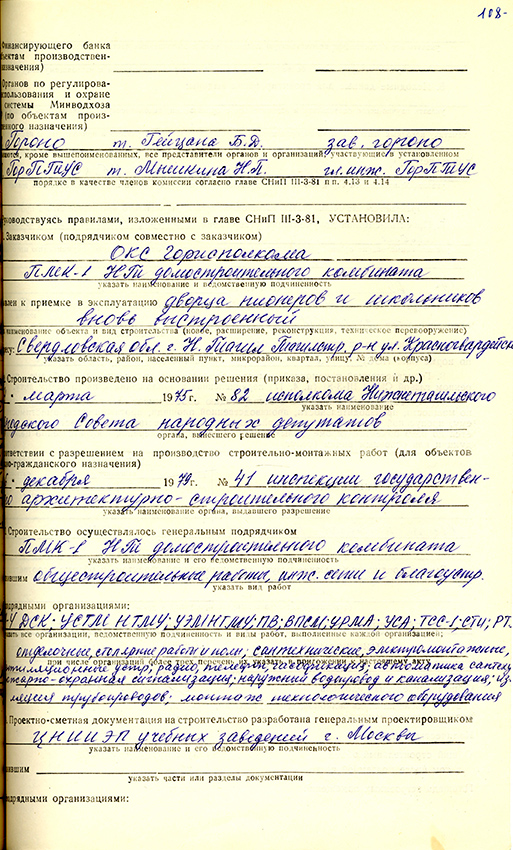 108-
Финансирующего банка
объектам производствен-
назначения)
Органов по регулирова-
использования и охране
системы Минводхоза
(по объектам произ-
венного назначения)
Гороно т. Гейцана Б.Д. зав. гороно
яются, кроме вышепоименованных, все представители органов и организаций, участвующие в установленном
ГорПТУС т. Мишкина Н.П. гл. инж. ГорПТУС
порядке в качестве членов комиссии согласно главе СНиП III-3-81 п п. 4.13 и 4.14
руководствуясь правилами, изложенными в главе СНиП III-3-81, УСТАНОВИЛА:
. Заказчиком (подрядчиком совместно с заказчиком)
ОКС Горисполкома
ПМК-1 НТ домостроительного комбината
указать наименование и ведомственную подчиненность
влен к приемке в эксплуатацию дворца пионеров и школьников
вновь выстроенный
наименование объекта и вид строительства (новое, расширение, реконструкция, техническое перевооружение)
су: Свердловская обл. г. Н. Тагил Тагилстр. р-н ул. Красногвардейск
указать область, район, населенный пункт, микрорайон, квартал, улицу, № дома (корпуса)
. Строительство произведено на основании решения (приказа, постановления и др.)
марта 1973г. № 82 исполкома Нижнетагильского
указать наименование
родского Совета народных депутатов
органа, вынесшего решение
ответствии с разрешением на производство строительно-монтажных работ (для объектов
но-гражданского назначения)
декабря 1979г. № 41 инспекции государствен-
го архитектурно-строительного контроля
указать наименование органа, выдавшего разрешение
. Строительство осуществлялось генеральным подрядчиком
ПМК-1 НТ домостроительного комбината
указать наименование и его ведомственную подчиненность
нившим общестроительные работы, инж. сети и благоустр.
указать вид работ
подрядными организациями:
У ДСК; УСТМ НТМУ; УЭМНТМУ; ПВ; ВПСМ; УРМА; УСД; ТСС-1; СТИ; РТ.
зать все организации, ведомственную подчиненность и виды работ, выполненные каждой организацией;
отделочные, столярные работы и полы; сантехнические, электромонтажные,
при числе организаций более трех перечень их указать в приложении к настоящему акту
тиляционные устр; радио, телефон, газификация; автоматика сантех,
жарно-охранная сигнализация; наружний водопровод и канализация; из-
ляция трубопроводов; монтаж технологического оборудования
. Проектно-сметная документация на строительство разработана генеральным проектировщиком
ЦНИИЭП учебных заведений г. Москвы
указать наименование и его ведомственную подчиненность
нившим
указать части или разделы документации
подрядными организациями: